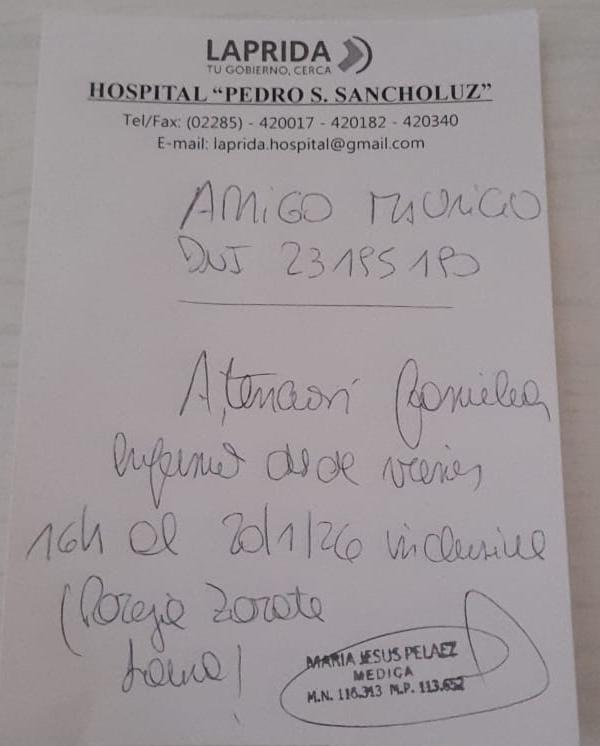 LAPRIDA
TU GOBIERNO, CERCA
HOSPITAL “PEDRO S. SANCHOLUZ”
Tel/Fax: (02285) - 420017 - 420182 - 420340
E-mail: laprida.hospital@gmail.com
AMIGO MAURICIO
DNI 23195190
Atención familiar
enfermo desde viernes
16h al 20/1/26 inclusive
(Pareja Zarate
MARIA JESUS PELAEZ
MEDICA
M.N. 116.313 M.P. 113.652